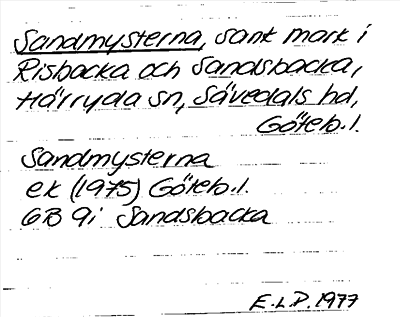 Sandmysterna, sank mark i
Risbacka och Sandsbacka,
Härryda sn, Sävedals hd,
Göteb. l.
Sandmysterna
ek (1975) Göteb. l.
6B 9i Sandsbacka
E.L.P. 1977